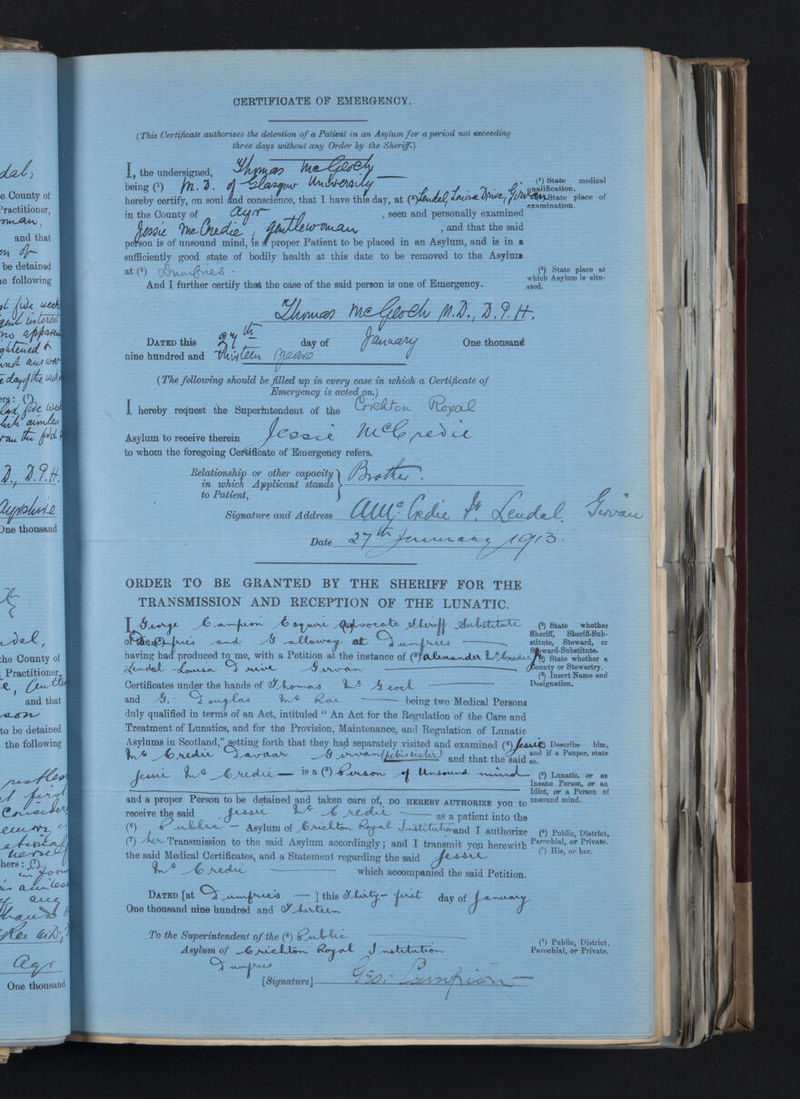 CERTIFICATE OF EMERGENCY.
(This Certificate authorizes the detention of a Patient in an Asylum for a period not exceeding
three days without any Order by the Sheriff.)
I, the undersigned, Thomas McGeoch
being (¹) M.D. of Glasgow University
hereby certify, on soul and conscience, that I have this day, at (²) Lendal, Louisa Drive, Girvan
in the County of Ayr , seen and personally examined
Jessie McCredie, gentlewoman , and that the said
person is of unsound mind, is a proper Patient to be placed in an Asylum, and is in a
sufficiently good state of bodily health at this date to be removed to the Asylum
at (³) Dumfries.
And I further certify that the case of the said person is one of Emergency.
(¹) State medical
qualification.
(²) State place of
examination.
(³) State place at
which Asylum is situ-
ated.
Thomas McGeoch M.D., D.P.H.
DATED this 27th day of January One thousand
nine hundred and thirteen years
(The following should be filled up in every case in which a Certificate of
Emergency is acted on.)
I hereby request the Superintendent of the Crichton Royal
Asylum to receive therein Jessie McCredie
to whom the foregoing Certificate of Emergency refers.
Relationship or other capacity
in which Applicant stands
to Patient,
Brother.
Signature and Address A McCredie Jr. Lendal. Girvan
Date 27th January 1913.
ORDER TO BE GRANTED BY THE SHERIFF FOR THE
TRANSMISSION AND RECEPTION OF THE LUNATIC.
I, George Campion Esquire Advocate Sheriff Substitute
of Dumfries and Galloway at Dumfries
having had produced to me, with a Petition at the instance of (²) Alexander McCredie Jr
Lendal Louisa Drive Girvan
Certificates under the hands of Thomas McGeoch
and J. Douglas McRae being two Medical Persons
duly qualified in terms of an Act, intituled "An Act for the Regulation of the Care and
Treatment of Lunatics, and for the Provision, Maintenance, and Regulation of Lunatic
Asylums in Scotland," setting forth that they had separately visited and examined (³) Jessie
McCredie Davaar Girvan (his sister) and that the said
Jessie McCredie is a (⁴) Person of Unsound mind
and a proper Person to be detained and taken care of, DO HEREBY AUTHORIZE you to
receive the said Jessie McCredie as a patient into the
(⁶) Public Asylum of Crichton Royal Institution and I authorize
(⁷) her Transmission to the said Asylum accordingly; and I transmit you herewith
the said Medical Certificates, and a Statement regarding the said Jessie
McCredie which accompanied the said Petition.
DATED [at Dumfries ] this Thirty-first day of January
One thousand nine hundred and Thirteen
To the Superintendent of the (⁸) Public
Asylum of Crichton Royal Institution
Dumfries
[Signature] Geo: Campion
State whether
Sheriff, Sheriff-Sub-
stitute, Steward, or
Steward-Substitute.
State whether a
County or Stewartry.
(³) Insert Name and
Designation.
Describe him,
and if a Pauper, state
so.
(⁵) Lunatic, or an
Insane Person, or an
Idiot, or a Person of
unsound mind.
(⁶) Public, District,
Parochial, or Private.
(⁷) His, or her.
(⁸) Public, District,
Parochial, or Private.
e County of
Practitioner,
and that
be detained
e following
D., D.P.H.
Ayrshire
One thousand
the County of
Practitioner,
and that
to be detained
the following
hers:
Ayr
One thousand